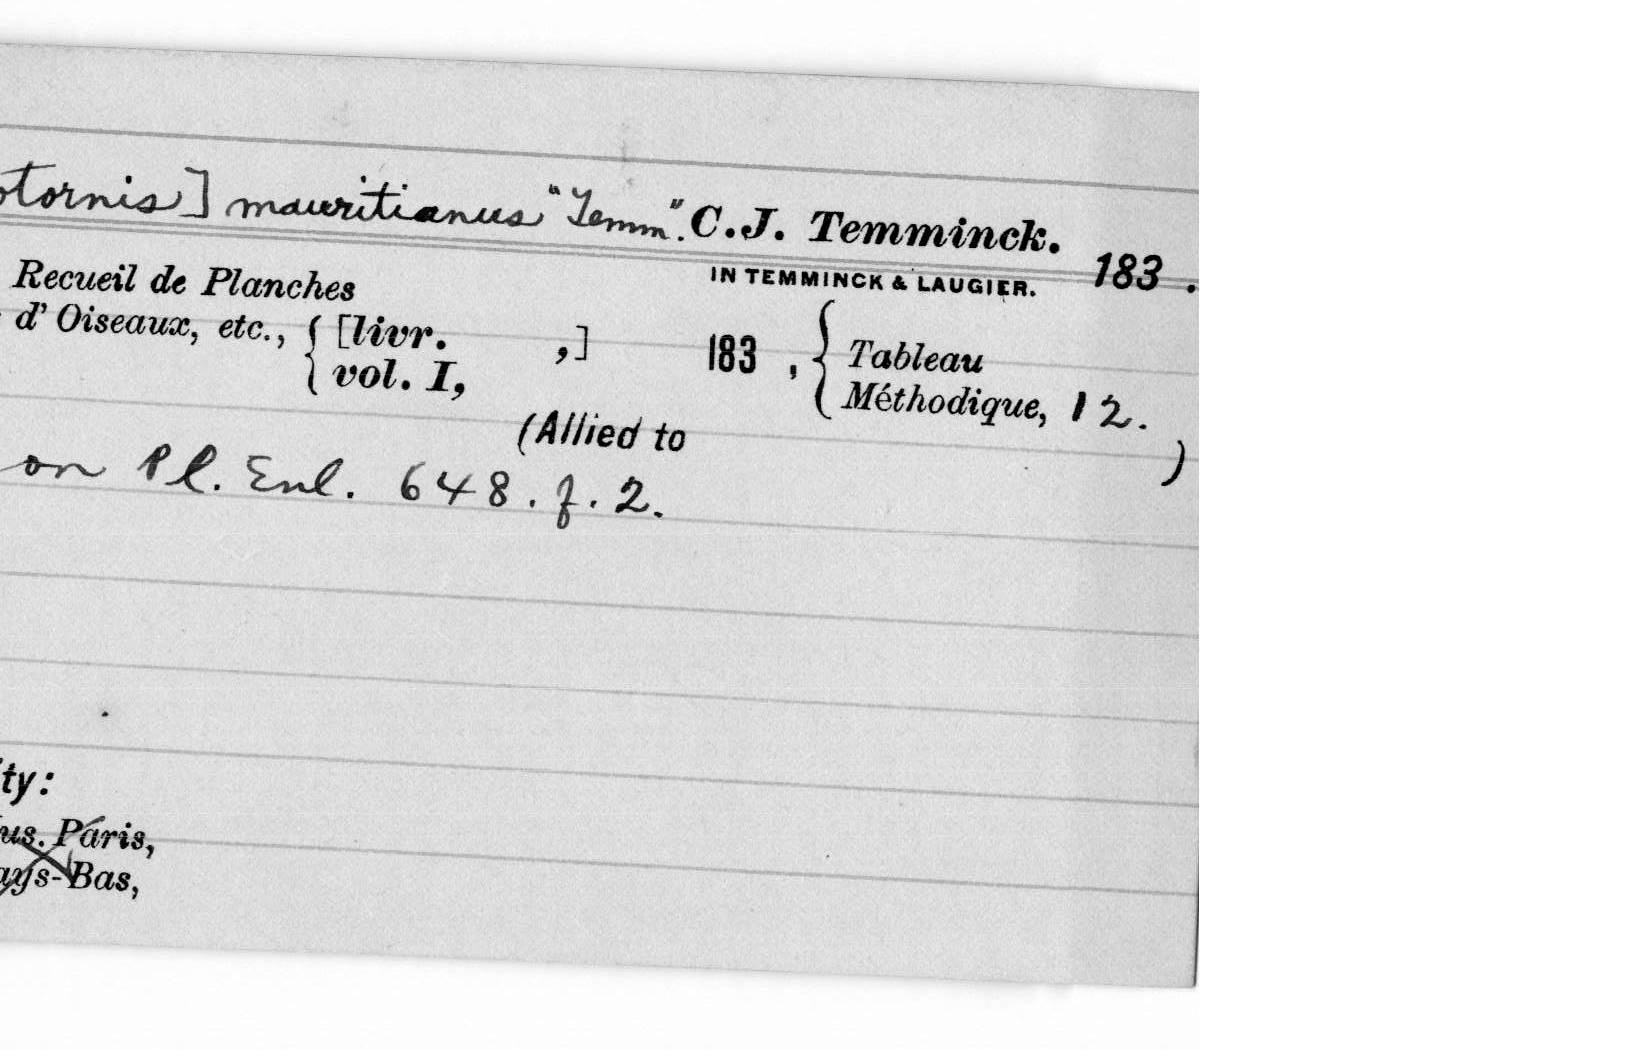 otornis] mauritianus "Temm". C.J. Temminck.
IN TEMMINCK & LAUGIER. 183 .
Recueil de Planches
d' Oiseaux, etc., { [livr. ,] 183 , { Tableau
vol. I, Méthodique, 12.
(Allied to )
on Pl. Enl. 648. f. 2.
ity:
us. Paris,
ays-Bas,